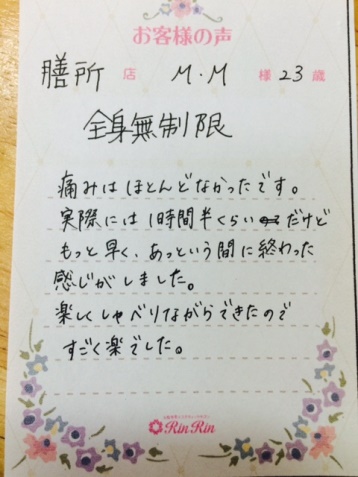 お客様の声
膳所 店 M.M 様 23 歳
全身無制限
痛みはほとんどなかったです。
実際には1時間半くらいだけど
もっと早く、あっという間に終わった
感じがしました。
楽しくしゃべりながらできたので
すごく楽でした。
RinRin